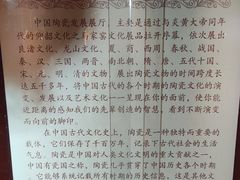 中国陶瓷发展展厅，主要是通过与炎黄大帝同年
代的仰韶文化之彩陶文化展品拉开序幕，依次展出
良渚文化、龙山文化、夏、商、西周、春秋、战国、
秦、汉、三国、两晋、南北朝、隋、唐、五代十国、
宋、元、明、清的文物，展出陶瓷文物的时间跨度长
达五千多年，将中国古代的各个时期的陶瓷文化的演
变、发展以及艺术文化一一呈现在你的面前，使你能
近距离的感知我们的先辈创造的智慧，看到不断演变
而向前的脚印。
在中国古代文化史上，陶瓷是一种独特而重要的
载体，它们保存了千百年，记录了古代社会的生活
气息，陶瓷是中国对人类文化文明的重大贡献之一，
中国有瓷国之称，陶瓷几乎贯穿了中国历史各个时期
，它能够系统记载所有历史信息，这是其他文